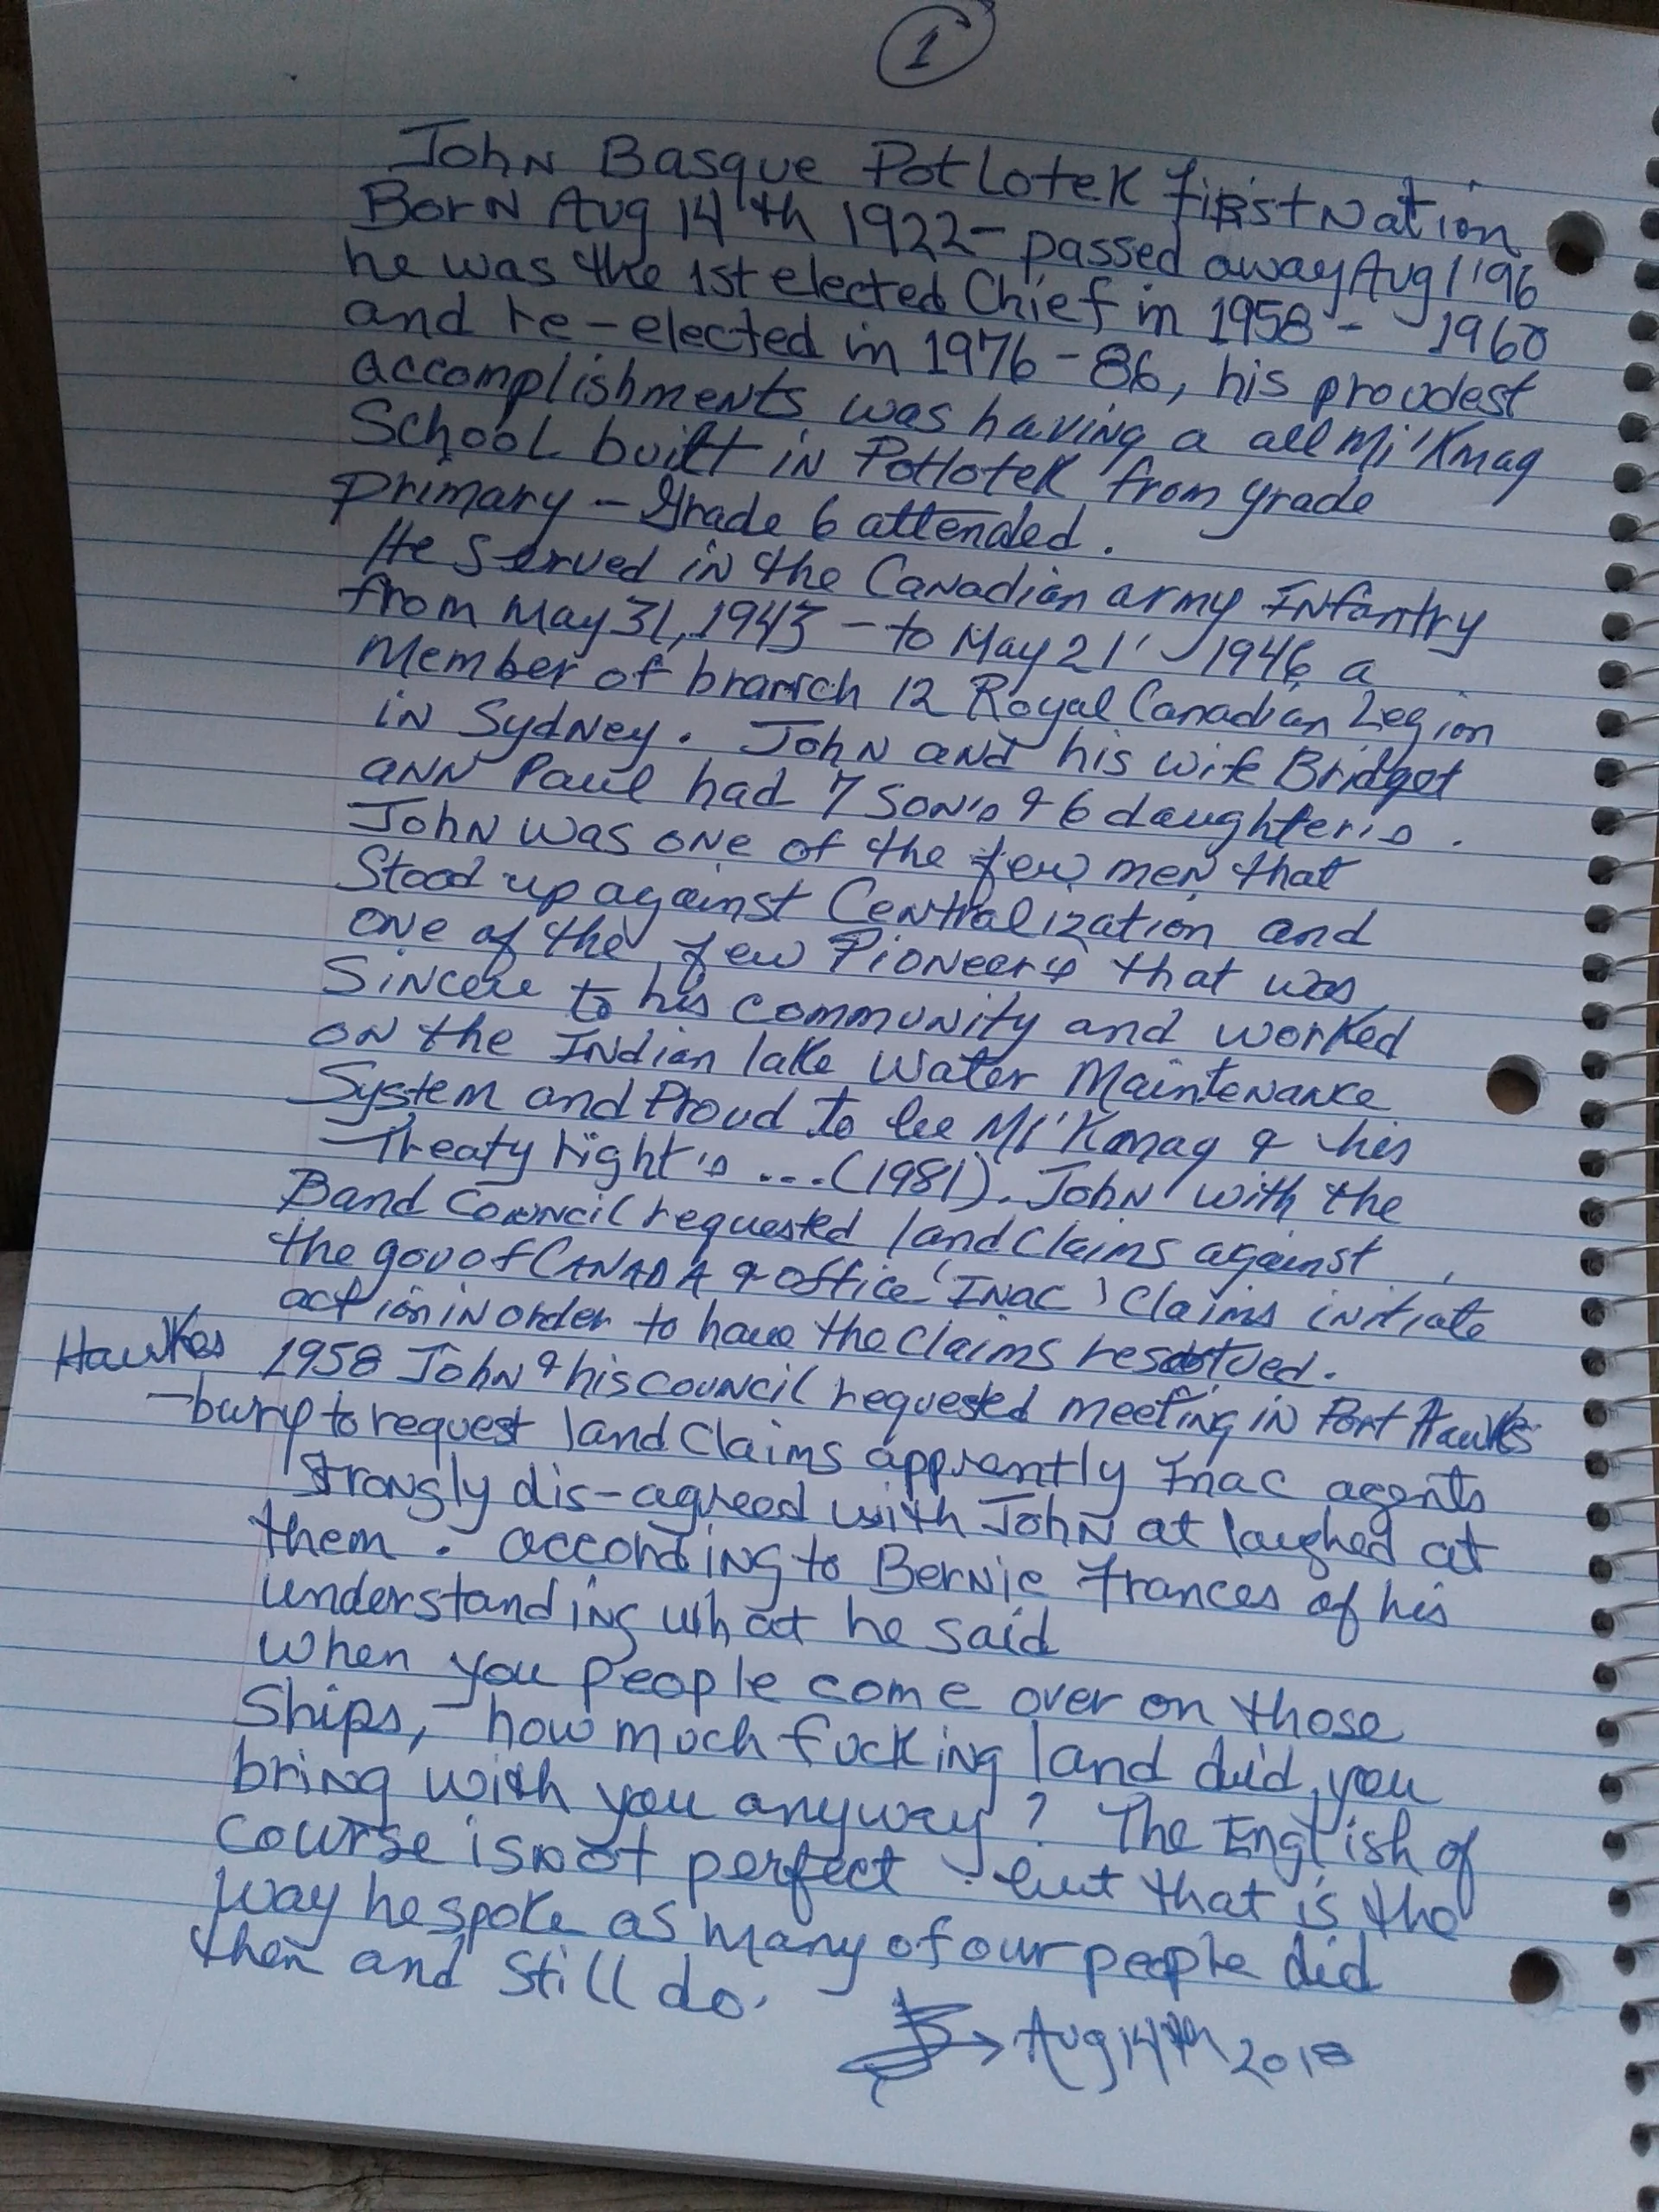 1
John Basque Potlotek first Nation
Born Aug 14th 1922 - passed away Aug 1'96
he was the 1st elected Chief in 1958 - 1960
and re-elected in 1976-86, his proudest
accomplishments was having a all Mi'Kmaq
School built in Potlotek from grade
primary - Grade 6 attended.
He served in the Canadian army INfantry
from May 31, 1943 - to May 21' 1946 a
Member of branch 12 Royal Canadian Legion
in Sydney. John and his wife Bridget
ANN Paul had 7 SON's & 6 daughter's.
John was one of the few men that
Stood up against Centralization and
one of the few Pioneers that was
Sincere to his community and worked
on the INdian lake Water Maintenance
System and Proud to be Mi'Kmaq & his
Treaty right's ...(1981). John with the
Band Council requested land Claims against
the gov of CANADA & office (INAC) Claims initiate
action in order to have the Claims resolved.
1958 John & his council requested meeting in Port Hawks
Hawkes
-bury to request land Claims apprently Inac agents
Strongly dis-agreed with John at laughed at
them. according to Bernie Frances of his
understanding what he said
When you people come over on those
Ships, - how much fucking land did you
bring with you anyway? The English of
Course is not perfect but that is the
way he spoke as many of our people did
then and still do.
Aug 14th 2018